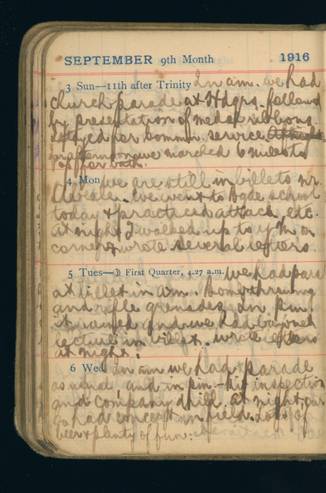 SEPTEMBER 9th Month 1916
3 Sun—11th after Trinity In am. we had
church parade at Hdqrs. followed
by presentation of medal ribbons
stayed for commun. service
in afternoon we marched 6 miles to
for bath.
4 Mon. we are still in billets nr
we went to Bgde school
today & practiced attack, etc.
at night I walked up to on
corner & wrote several letters.
5 Tues—☽ First Quarter, 4.27 a.m. we had para
at billet in am. Bomb throwing
and rifle grenades in p.m.
it rained and we had bayonet
lecture in billet. wrote letters
at night.
6 Wed. In am we had parade
as usual and in p.m.—kit inspection
and company drill. at night our
Co had concert in field. lots of
beer & plenty of fun.